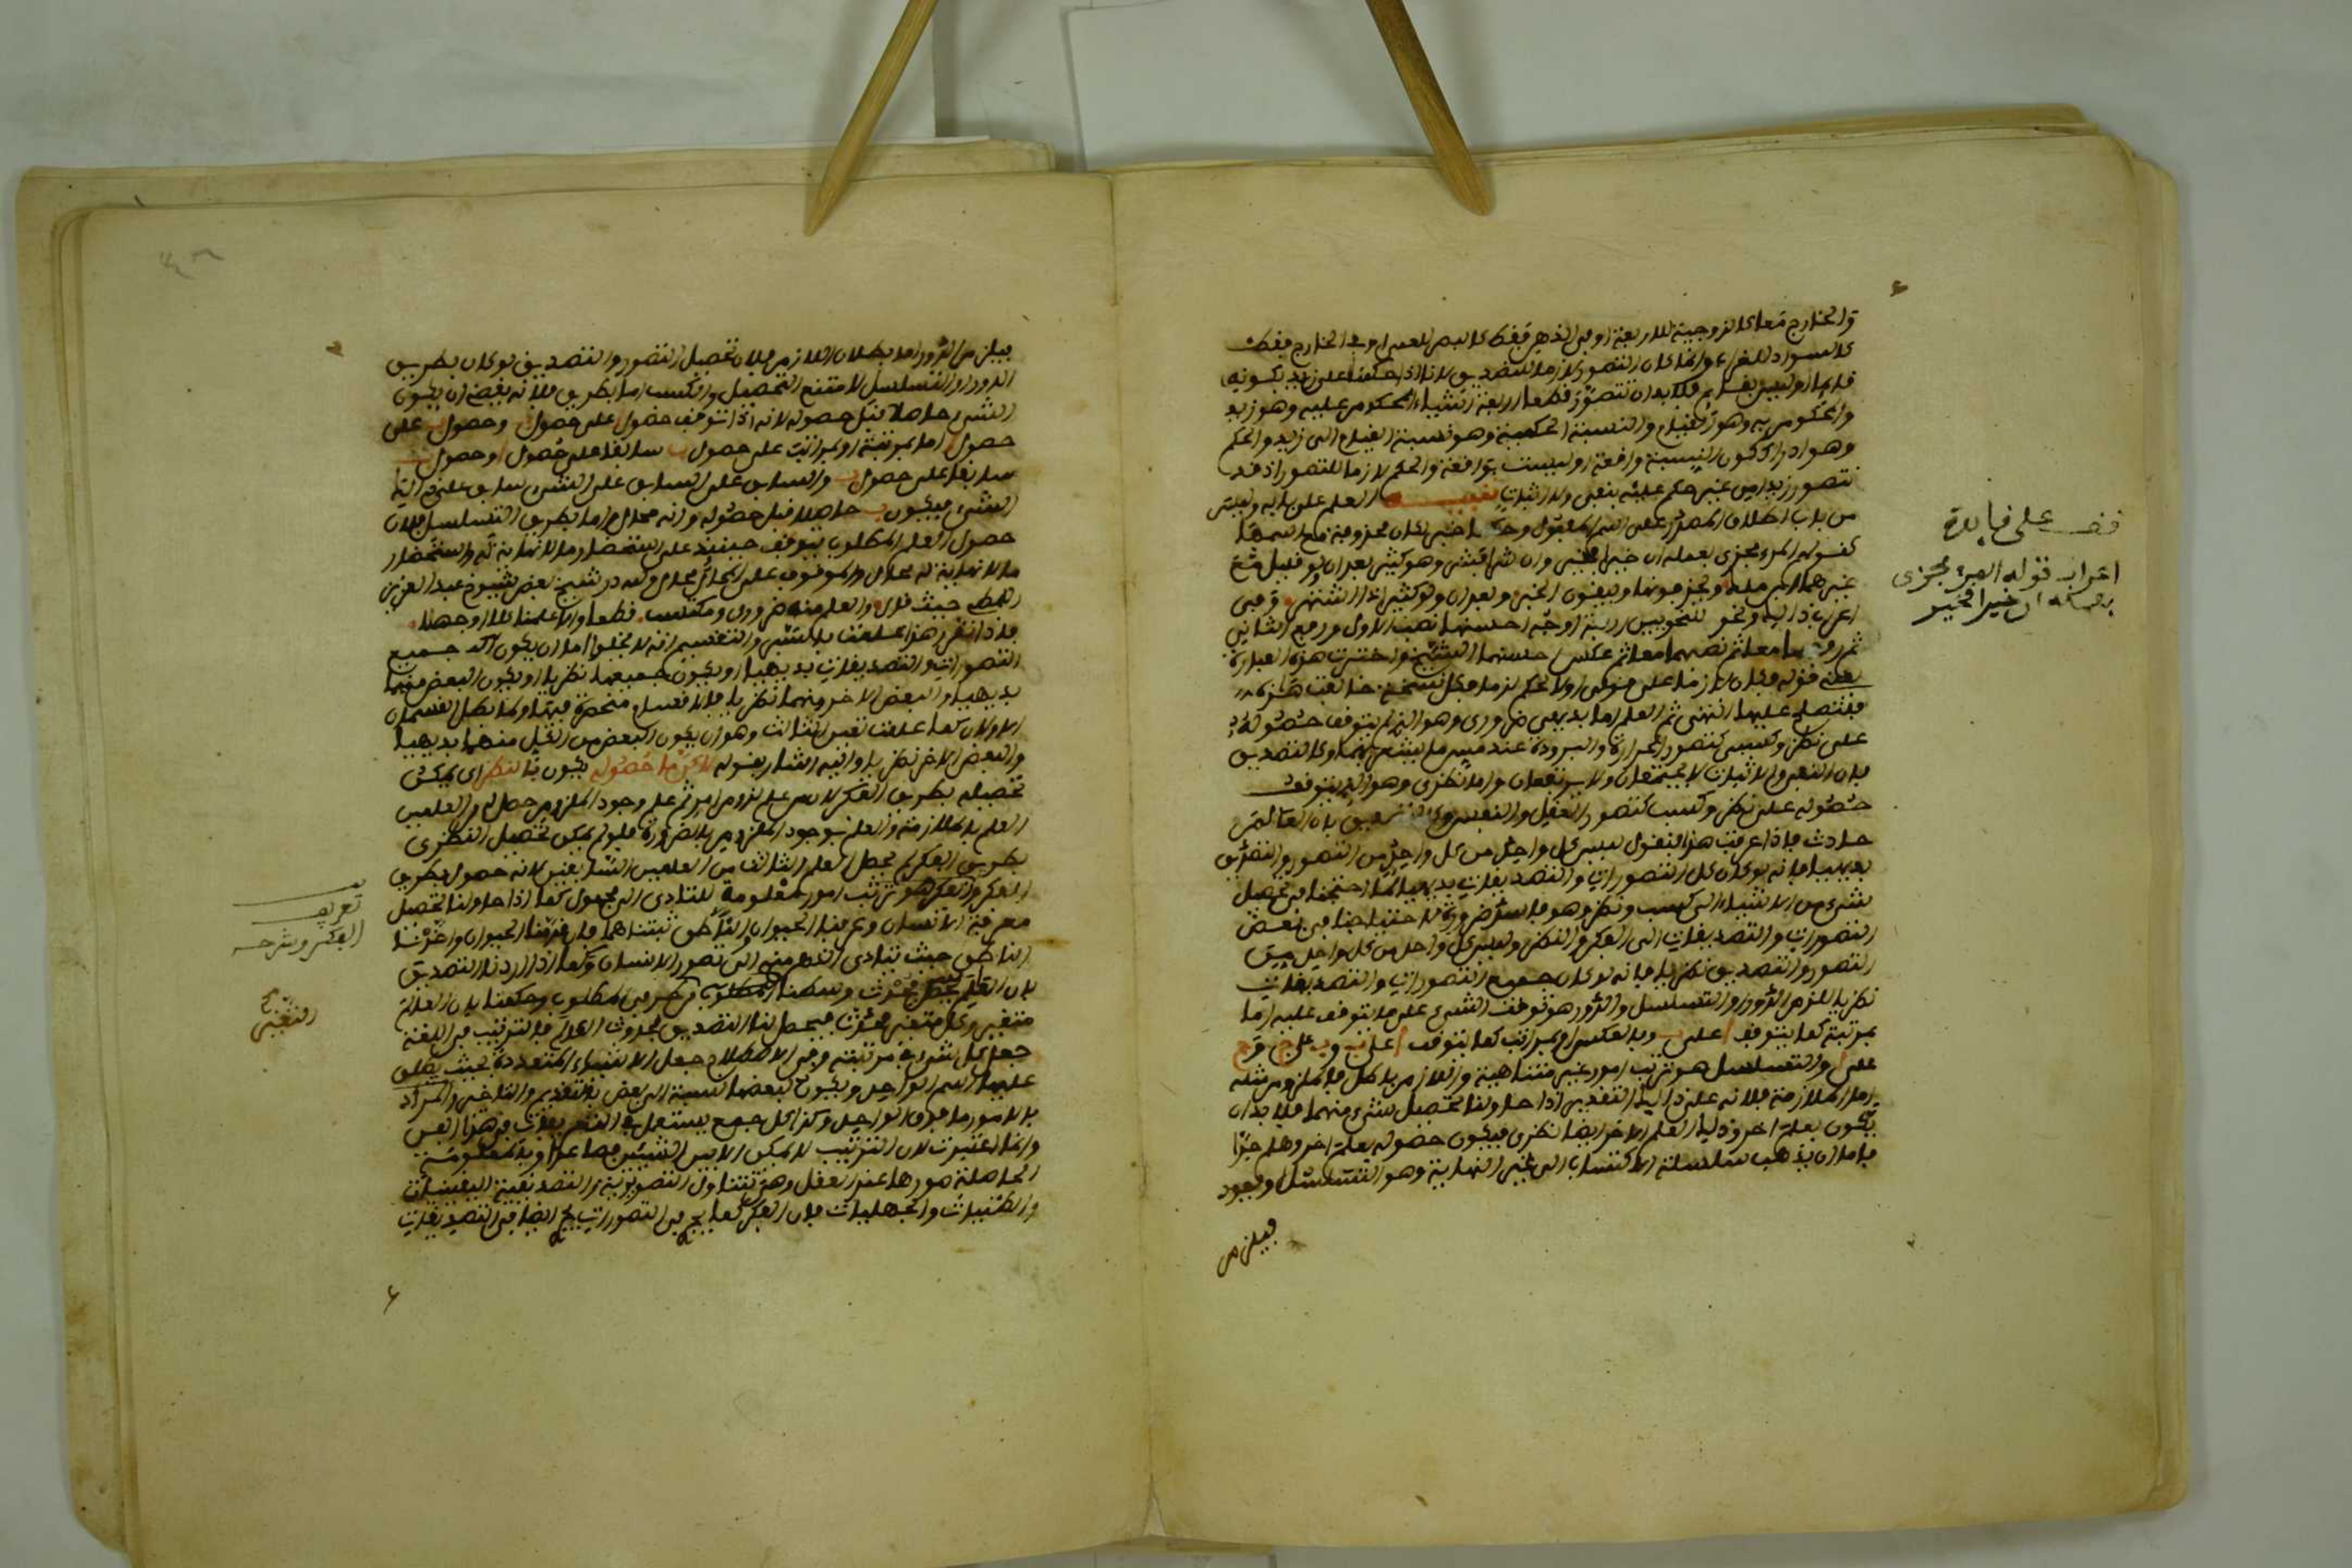 والخارج معا كالزوجية للاربعة او في الذهن فقط كالبصر للعمى او في الخارج فقط
كالسواد للغراب وانما كان التصور لازما للتصديق لانا اذا حكمنا على زيد بكونه
قائما او ليس بقائم فلا بد ان نتصور قطعا اربعة اشياء المحكوم عليه وهو زيد
والمحكوم به وهو القيام والنسبة الحكمية وهو نسبة القيام الى زيد والحكم
وهو ادراك كون النسبة واقعة او ليست بواقعة والحكم لازما للتصور اذ قد
نتصور زيدا من غير حكم عليه بنفي ولا اثبات العلم على بابه وليس
من باب اطلاق المصدر على اسم المفعول
كقولهم المرء مجزى بعمله ان خيرا فخير وان شرا فشر وهو كثير بعد ان ولو قليل مع
غيرهما
اعراب ذلك ونحوه للنحويين اربعة اوجه احسنها نصب الاول ورفع الثاني
ثم رفعهما معا ثم نصبهما معا ثم عكس احسنهما الشيخ واختيرت هذه العبارة
فتصلح عليها انتهى ثم العلم اما بديهي ضروري وهو الذي لم يتوقف حصوله
على نظر وكسب كتصور الحرارة والبرودة عند مس ما يتصف بهما وكالتصديق
بان النفي والاثبات لا يجتمعان ولا يرتفعان واما نظري وهو الذي يتوقف
حصوله على نظر وكسب كتصور العقل والنفس وكالتصديق بان العالم
حادث فاذا عرفت هذا فنقول ليس كل واحد من كل واحد من التصور والتصديق
بديهيا فانه لو كان كل التصورات والتصديقات بديهيا لما احتجنا في تحصيل
شيء من الاشياء الى كسب ونظر وهو فاسد ضرورة احتياجنا في بعض
التصورات والتصديقات الى الفكر والنظر وليس كل واحد من كل واحد من
التصور والتصديق نظريا فانه لو كان جميع التصورات والتصديقات
نظريا للزم الدور او التسلسل والدور هو توقف الشيء على ما يتوقف عليه اما
بمرتبة كما يتوقف ا على ب وبالعكس او بمراتب كما يتوقف ا على ب وب على ج وج
على ا والتسلسل هو ترتيب امور غير متناهية واللازم باطل فالملزوم مثله
اما الملازمة فلانه على ذلك التقدير اذا حاولنا تحصيل شيء منهما فلا بد ان
يكون بعلم اخر وذلك العلم الاخر ايضا نظري فيكون حصوله بعلم اخر وهلم جرا
فاما ان يذهب سلسلة الاكتساب الى غير النهاية وهو التسلسل او يعود
فيلزم
قف على فايدة
اعراب قوله المرء مجزى
بعمله ان خيرا فخير
فيلزم الدور اما بطلان اللازم فلان تحصيل التصور والتصديق لو كان بطريق
الدور او التسلسل لامتنع التحصيل والكسب اما بطريق فلانه يفضي ان يكون
الشيء حاصلا قبل حصوله لانه اذا توقف حصول ا على حصول ب وحصول ب على
حصول ا اما بمرتبة او بمراتب على حصول ب سابقا على حصول ا وحصول
سابقا على حصول ب والسابق على السابق على الشيء سابق على ذلك
الشيء فيكون ب حاصلا قبل حصوله وانه محال واما بطريق التسلسل فلان
حصول العلم المطلوب يتوقف حينئذ على استحضار ما لا نهاية له واستحضار
ما لا نهاية له محال والموقوف على المحال محال
حيث قال والعلم منه ضروري ومكتسب قطعا والا علمنا الا او جهلا
فاذا تقرر هذا والتقسيم انه لا يخلو اما ان يكون جميع
التصورات والتصديقات بديهيا او يكون جميعها نظريا او يكون البعض منهما
بديهيا والبعض الاخر منهما نظريا فالاقسام منحصرة فيها ولما بطل القسمان
الاولان كما علمت تعين الثالث وهو ان يكون البعض من كل منهما بديهيا
والبعض الاخر نظريا واليه اشار بقوله حصوله يكون بالنظر اي يمكن
تحصيله بطريق الفكر لان من علم لزوم امر ثم علم وجود الملزوم حصل له من العلمين
العلم بالملازمة والعلم بوجود الملزوم بالضرورة فلو لم يمكن تحصيل النظري
بطريق الفكر لم يحصل العلم الثالث من العلمين السابقين لانه حصول بطريق
الفكر والفكر هو ترتيب امور معلومة للتادي الى مجهول كما اذا حاولنا تحصيل
معرفة الانسان وعرفنا الحيوان والناطق رتبناهما فان قدمنا الحيوان واخرنا
الناطق حيث يتادى الذهن منه الى تصور الانسان وكما اذا اردنا التصديق
بان العالم حادث وسطنا المتغير بين طرفي المطلوب وحكمنا بان العالم
متغير وكل متغير حادث فيحصل لنا التصديق بحدوث العالم فالترتيب في اللغة
جعل كل شيء في مرتبته وفي الاصطلاح جعل الاشياء المتعددة بحيث يطلق
عليها اسم الواحد ويكون لبعضها نسبة الى بعض بالتقديم والتاخير والمراد
بالامور ما فوق الواحد وكذا كل جمع يستعمل في التعريفات في هذا الفن
وانما اعتبرت لان الترتيب لا يمكن الا بين الشيئين فصاعدا وبالمعلومة
الحاصلة صورها عند العقل وهي تتناول التصورية والتصديقية اليقينيات
والظنيات والجهليات فان الفكر كما يجري في التصورات يجري ايضا في التصديقات
تعريف
الفكر وشرحه